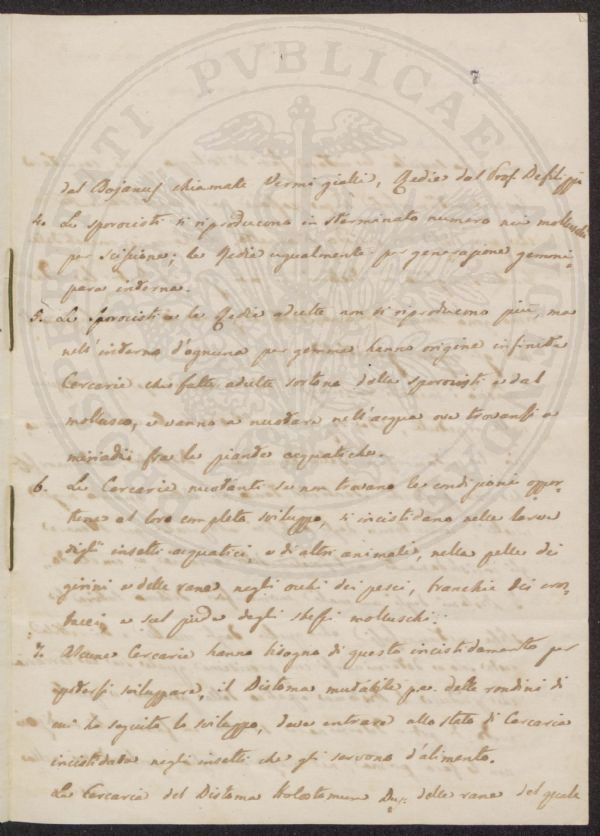 7
dal Bojanus chiamate Vermi gialli, Redie dal Prof. Defilippi
4. Le sporocisti si riproducono in sterminato numero nei molluschi
per scissione; le Redie ugualmente per generazione gemmi-
para interna.
5. Le Sporocisti e le Redie adulte non si riproducono più, ma
nell'interno d'ognuna per gemma hanno origine infinite
Cercarie che fatte adulte sortono dalle sporocisti e dal
mollusco, e vanno a nuotare nell'acqua ove trovansi a
miriadi fra le piante acquatiche.
6. Le Cercarie nuotanti se non trovano le condizioni oppor-
tune al loro completo sviluppo, si incistidano nelle larve
degli insetti acquatici, e di altri animali, nella pelle dei
girini e delle rane negli occhi dei pesci, branchie dei cros-
tacei, e sul piede degli stessi molluschi.
7. Alcune Cercarie hanno bisogno di questo incistidamento per
potersi sviluppare, il Distoma mutabile p.e. delle rondini di
cui ho seguito lo sviluppo, deve entrare allo stato di Cercaria
incistidata negli insetti che gli servono d'alimento.
La Cercaria del Distoma Duj. delle rane del quale
PVBLICAE